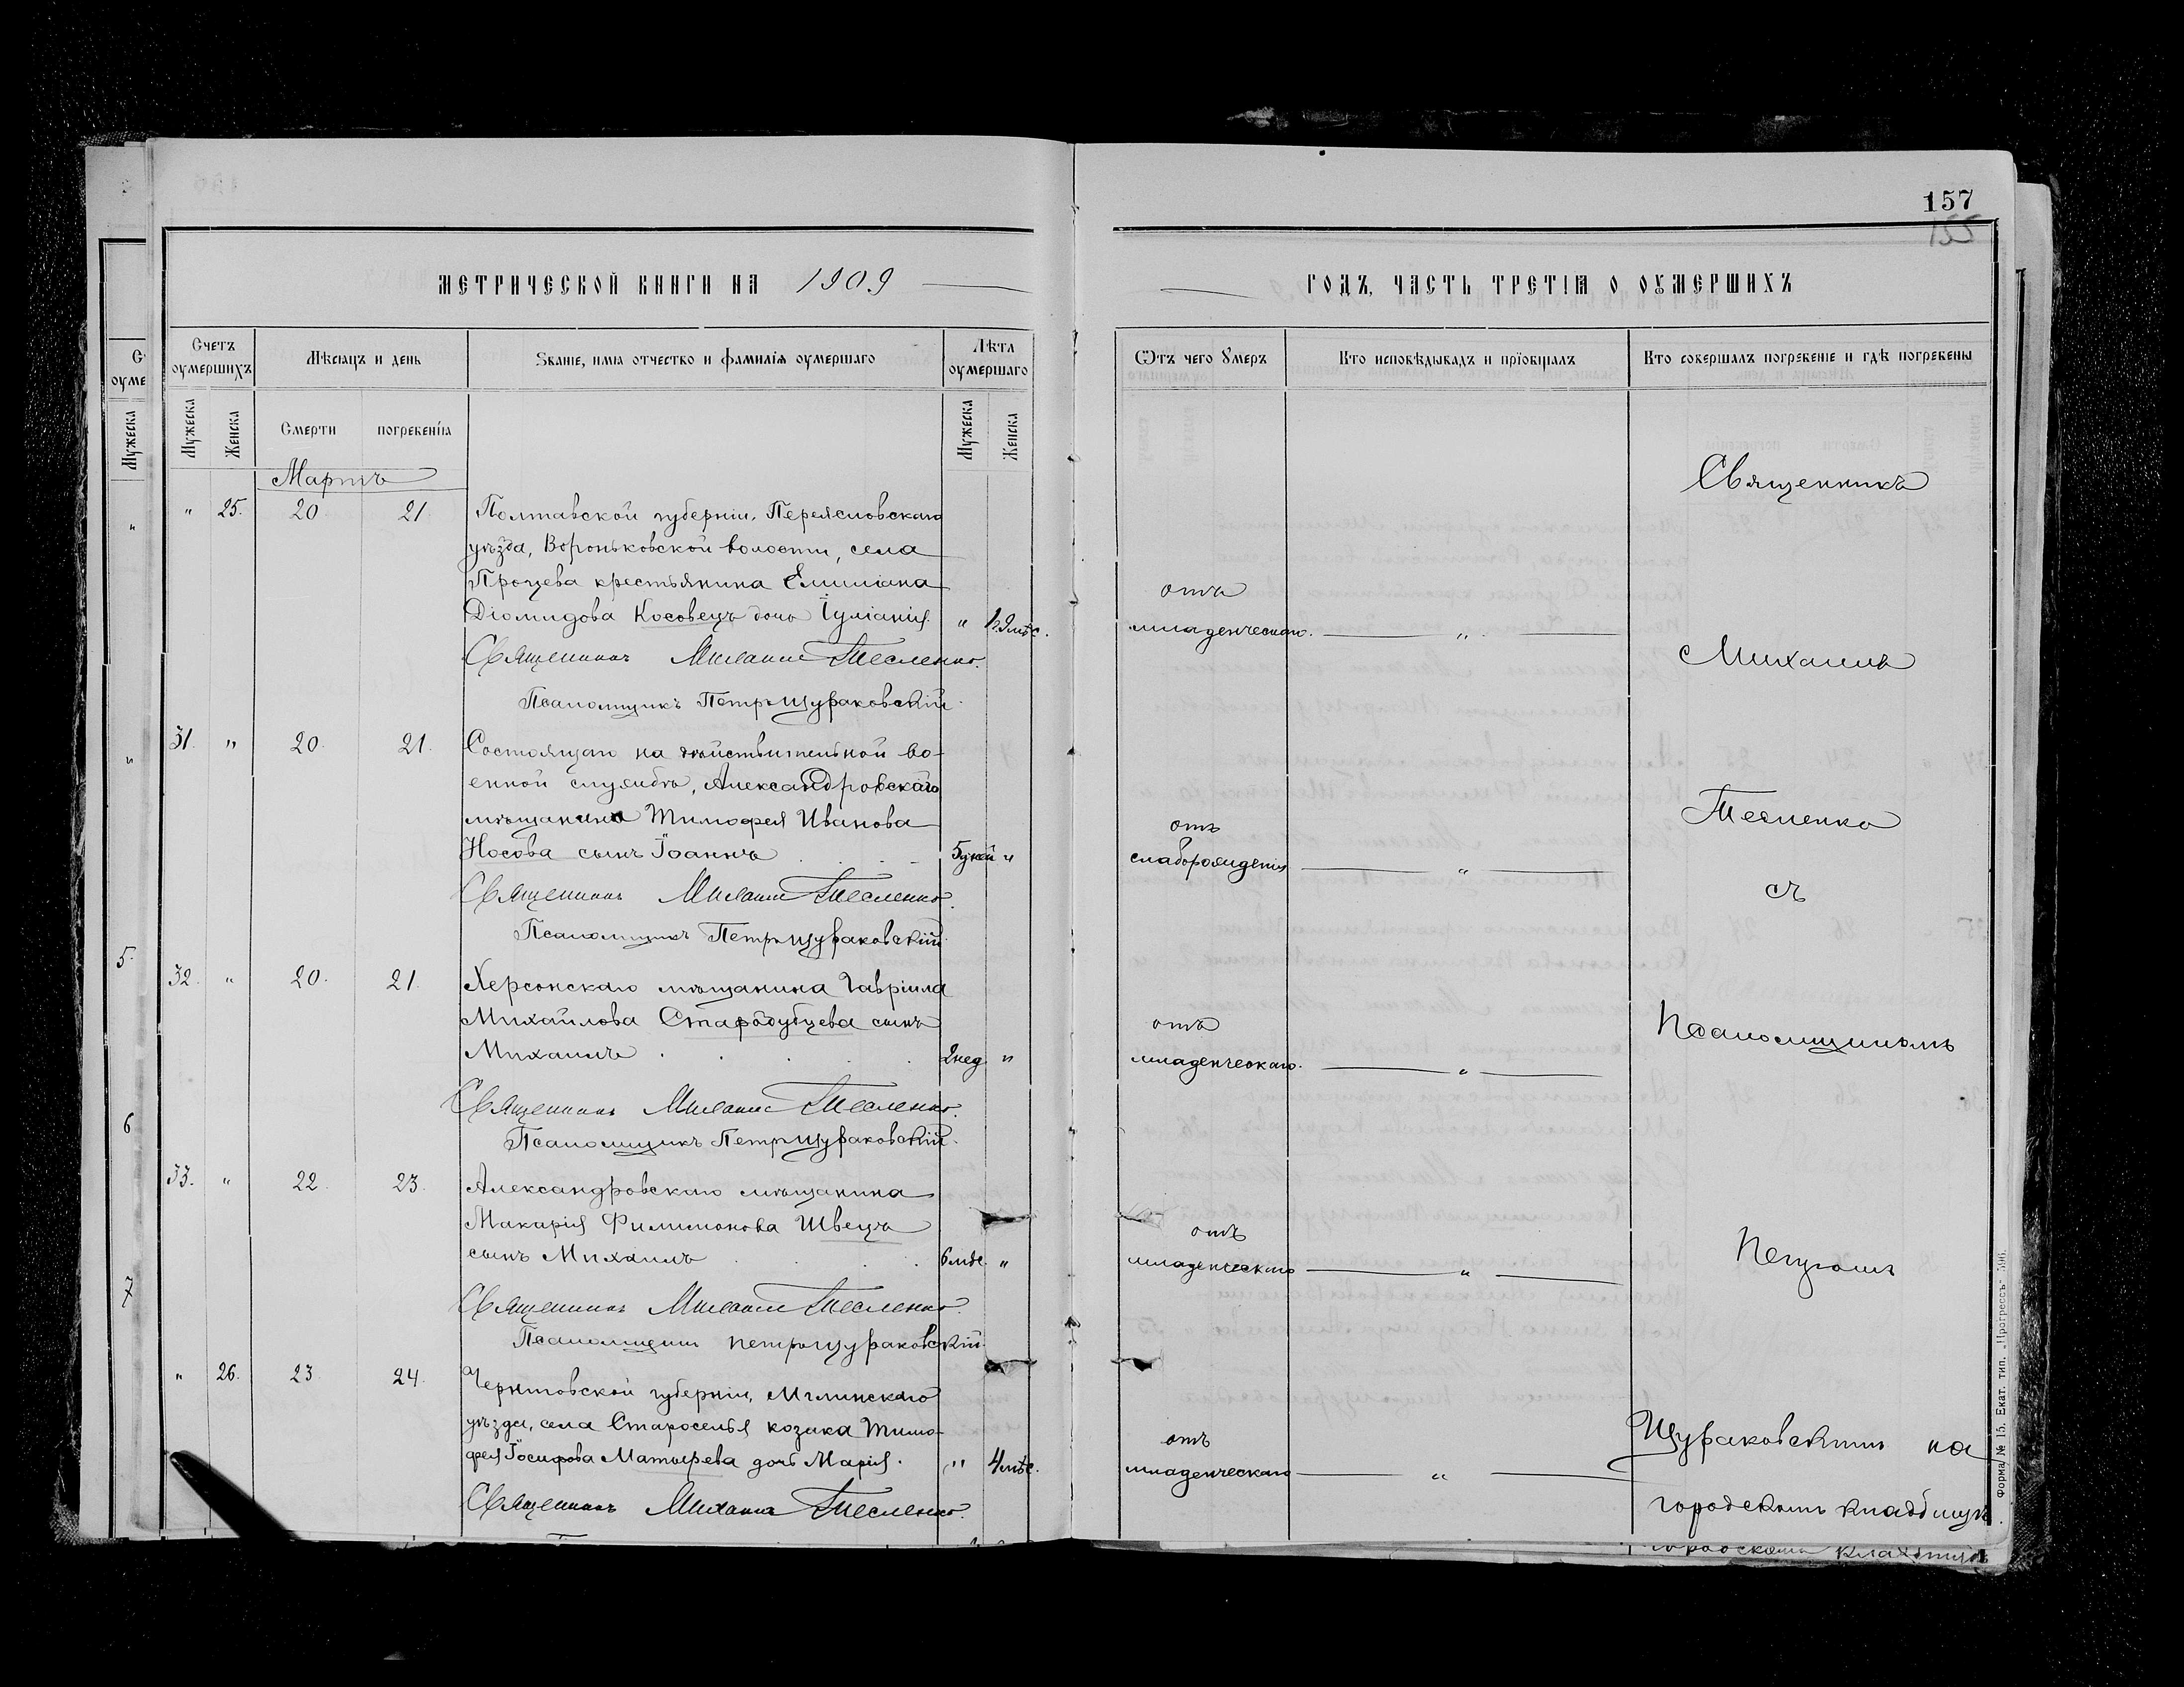 157
155
МЕТРИЧЕСКОЙ КНИГИ НА 1909
ГОДЪ, ЧАСТЬ ТРЕТІЯ О ОУМЕРШИХЪ
Счетъ оумершихъ
Мѣсяцъ и день
Званіе, имя отчество и фамилія оумершаго
Лѣта оумершаго
Отъ чего Умеръ
Кто исповѣдывалъ и пріобщалъ
Кто совершалъ погребеніе и гдѣ погребены
Мужеска
Женска
Смерти
погребенія
Мужеска
Женска
Мартъ
" 25. 20 21 Полтавской губерніи, Переясловскаго
уѣзда, Вороньковской волости, села
Процева крестьянина Емиліана
Діомидова Косовецъ дочь Іуліанія. "
Священникъ Михаилъ Тесленко.
Псаломщикъ Петръ Щураковскій.
отъ
младенческаго. "
31. " 20. 21. Состоящаго на дѣйствительной во-
енной службѣ, Александровскаго
мѣщанина Тимофея Иванова
Носова сынъ Іоаннъ 5 дней "
Священникъ Михаилъ Тесленко.
Псаломщикъ Петръ Щураковскій.
отъ
слаборожденія "
32. " 20. 21. Херсонскаго мѣщанина Гавріила
Михайлова Стародубцева сынъ
Михаилъ 2 нед. "
Священникъ Михаилъ Тесленко.
Псаломщикъ Петръ Щураковскій.
отъ
младенческаго. "
33. " 22. 23. Александровскаго мѣщанина
Макарія Филимонова Швецъ
сынъ Михаилъ 6 мѣс. "
Священникъ Михаилъ Тесленко.
Псаломщикъ Петръ Щураковскій.
отъ
младенческаго "
" 26. 23 24. Черниговской губерніи, Мглинскаго
уѣзда, села Староселья козака Тимо-
фея Іосифова Матырева дочь Марія. " 4 мѣс.
Священникъ Михаилъ Тесленко.
отъ
младенческаго "
Священникъ
Михаилъ
Тесленко
съ
Псаломщикомъ
Петромъ
Щураковскимъ на
городскомъ кладбищѣ
городскомъ кладбищѣ
Форма № 15. Екат. тип. „Прогрессъ"
5.
6
7